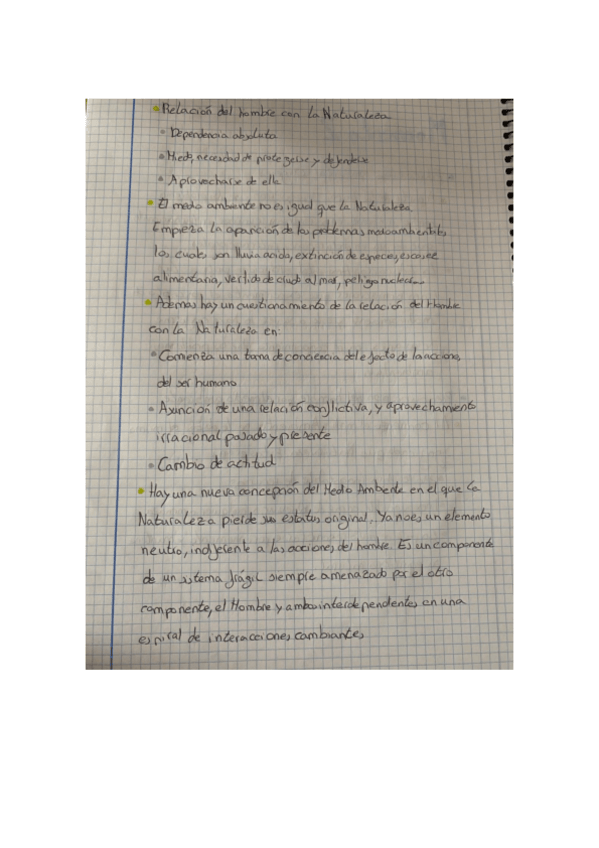 • Relación del hombre con la Naturaleza
• Dependencia absoluta
• Miedo, necesidad de protegerse y defenderse
• Aprovecharse de ella
• El medio ambiente no es igual que la Naturaleza
Empieza la aparición de los problemas medioambientales,
los cuales son lluvia acida, extinción de especies, escasez
alimentaria, vertido de crudo al mar, peligro nuclear...
• Ademas hay un cuestionamiento de la relación del Hombre
con la Naturaleza en:
• Comienza una toma de conciencia del efecto de las acciones
del ser humano
• Asunción de una relación conflictiva, y aprovechamiento
irracional pasado y presente
• Cambio de actitud
• Hay una nueva concepción del Medio Ambiente en el que la
Naturaleza pierde su estatus original. Ya no es un elemento
neutro, indiferente a las acciones del hombre. Es un componente
de un sistema frágil siempre amenazado por el otro
componente, el Hombre y ambos interdependientes en una
espiral de interacciones cambiantes